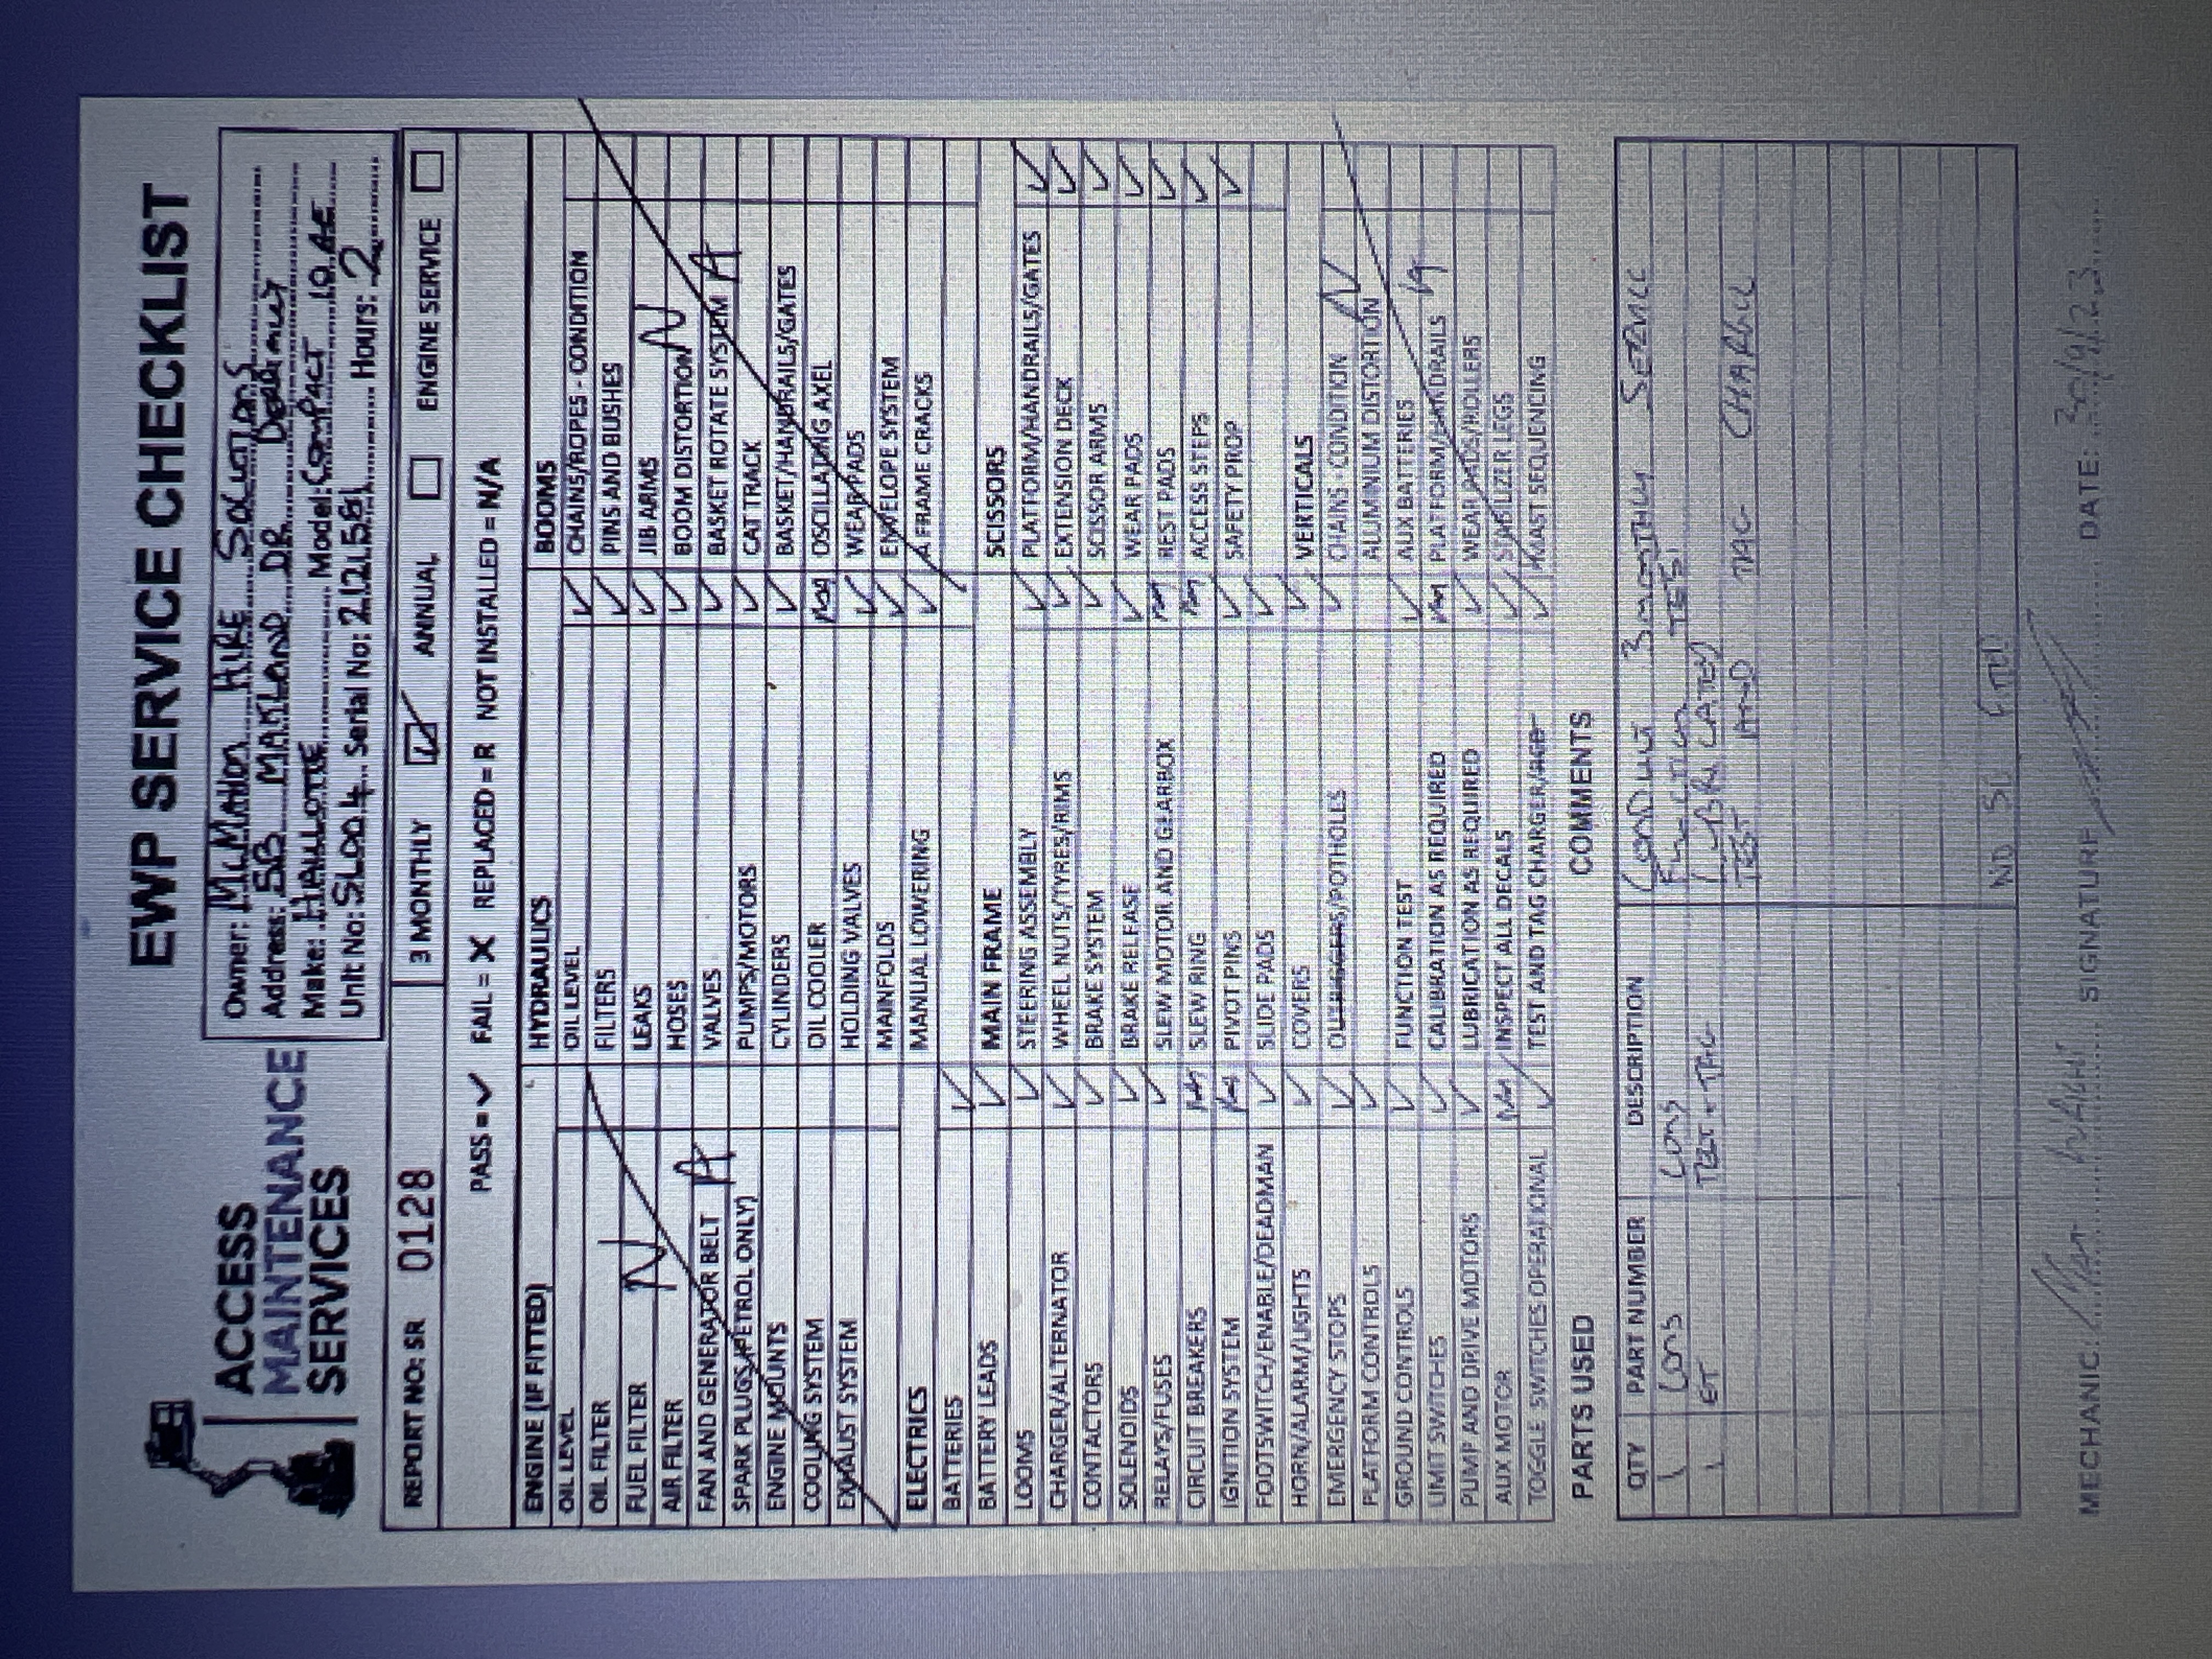 EWP SERVICE CHECKLIST
ACCESS
MAINTENANCE
SERVICES
Owner: McMahon HIRE SOLUTIONS
Address: 5B MAITLAND DR
Make: HAULOTTE Model: COMPACT 10 AE
Unit No: SL004 Serial No: Hours: 2
REPORT NO: SR 0128
3 MONTHLY ✓ ANNUAL ENGINE SERVICE
PASS = ✓ FAIL = X REPLACED = R NOT INSTALLED = N/A
ENGINE (IF FITTED)
OIL LEVEL
OIL FILTER
FUEL FILTER
AIR FILTER
FAN AND GENERATOR BELT
SPARK PLUGS (PETROL ONLY)
ENGINE MOUNTS
COOLING SYSTEM
EXHAUST SYSTEM
N A
ELECTRICS
BATTERIES ✓
BATTERY LEADS ✓
LOOMS ✓
CHARGER/ALTERNATOR ✓
CONTACTORS ✓
SOLENOIDS ✓
RELAYS/FUSES ✓
CIRCUIT BREAKERS NA
IGNITION SYSTEM NA
FOOTSWITCH/ENABLE/DEADMAN ✓
HORN/ALARM/LIGHTS ✓
EMERGENCY STOPS ✓
PLATFORM CONTROLS ✓
GROUND CONTROLS ✓
LIMIT SWITCHES ✓
PUMP AND DRIVE MOTORS ✓
AUX MOTOR NA
TOGGLE SWITCHES OPERATIONAL ✓
HYDRAULICS
OIL LEVEL ✓
FILTERS ✓
LEAKS ✓
HOSES ✓
VALVES ✓
PUMPS/MOTORS ✓
CYLINDERS ✓
OIL COOLER NA
HOLDING VALVES ✓
MAINFOLDS ✓
MANUAL LOWERING ✓
MAIN FRAME
STEERING ASSEMBLY ✓
WHEEL NUTS/TYRES/RIMS ✓
BRAKE SYSTEM ✓
BRAKE RELEASE ✓
SLEW MOTOR AND GEARBOX NA
SLEW RING NA
PIVOT PINS ✓
SLIDE PADS ✓
COVERS ✓
OUTRIGGERS/POTHOLES ✓
FUNCTION TEST ✓
CALIBRATION AS REQUIRED NA
LUBRICATION AS REQUIRED ✓
INSPECT ALL DECALS ✓
TEST AND TAG CHARGER/RCD ✓
BOOMS
CHAINS/ROPES - CONDITION
PINS AND BUSHES
JIB ARMS
BOOM DISTORTION
BASKET ROTATE SYSTEM
CAT TRACK
BASKET/HANDRAILS/GATES
OSCILLATING AXEL
WEAR PADS
ENVELOPE SYSTEM
A FRAME CRACKS
N A
SCISSORS
PLATFORM/HANDRAILS/GATES ✓
EXTENSION DECK ✓
SCISSOR ARMS ✓
WEAR PADS ✓
REST PADS ✓
ACCESS STEPS ✓
SAFETY PROP ✓
VERTICALS
CHAINS - CONDITION
ALUMINIUM DISTORTION
AUX BATTERIES
PLATFORM/HANDRAILS
WEAR PADS/ROLLERS
STABILIZER LEGS
MAST SEQUENCING
N A
PARTS USED
COMMENTS
QTY PART NUMBER DESCRIPTION
1 CONS CONS
1 TEST + TAG
CONDUCT 3 MONTHLY SERVICE
FUNCTION TEST
LUBRICATED
TEST AND TAG CHARGER
MECHANIC: SIGNATURE DATE: 30/9/23